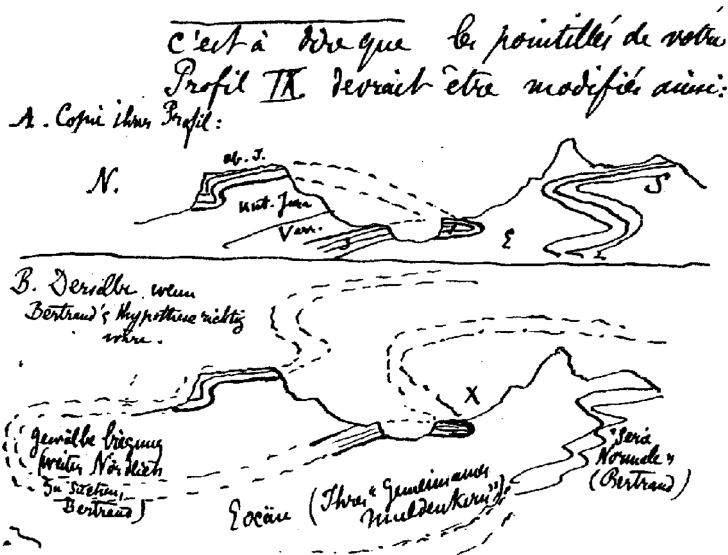 c'est à dire que les pointillés de votre
Profil IX. devrait être modifiés ainsi:
A. Copie ihres Profil:
N.
ob. J.
S
unt. Jura
Verr.
J
E
B. Derselbe wenn
Bertrand's Hypothese richtig
wäre.
X
Gewölbebiegung
weiter Nördlich
zu suchen,
Bertrand)
"Serie
Normale"
(Bertrand)
Eocän (Ihres "Gemeinsamer
Muldenkern")